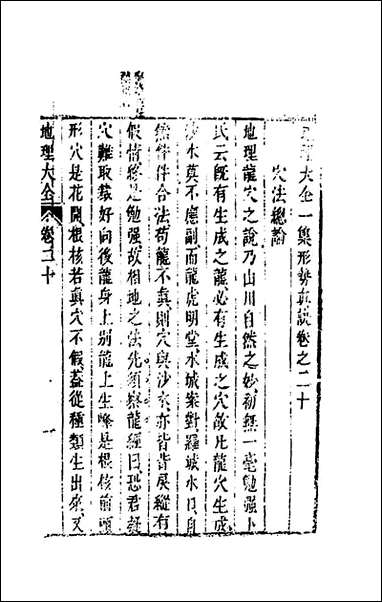 地理大全一集形勢真訣卷之二十
穴法總論
地理龍穴之說乃山川自然之妙初無一毫勉强卜
氏云既有生成之龍必有生成之穴故凡龍穴生成
沙水莫不應副而龍虎明堂水城案對羅城水口自
然件件合法苟龍不真則穴與沙水亦皆背戾縱有
假情終是勉强故相地之法先須察龍經曰恐君疑
穴難取裁好向後龍身上別龍上生峰是根核前頭
形穴是花開根核若真穴不假蓋從種類生出來又
地理大全 卷二十 一